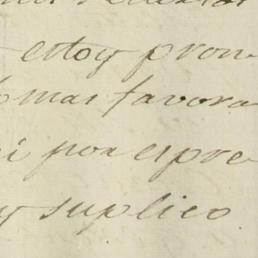 estoy pron
mas favora
i por espre
y suplico